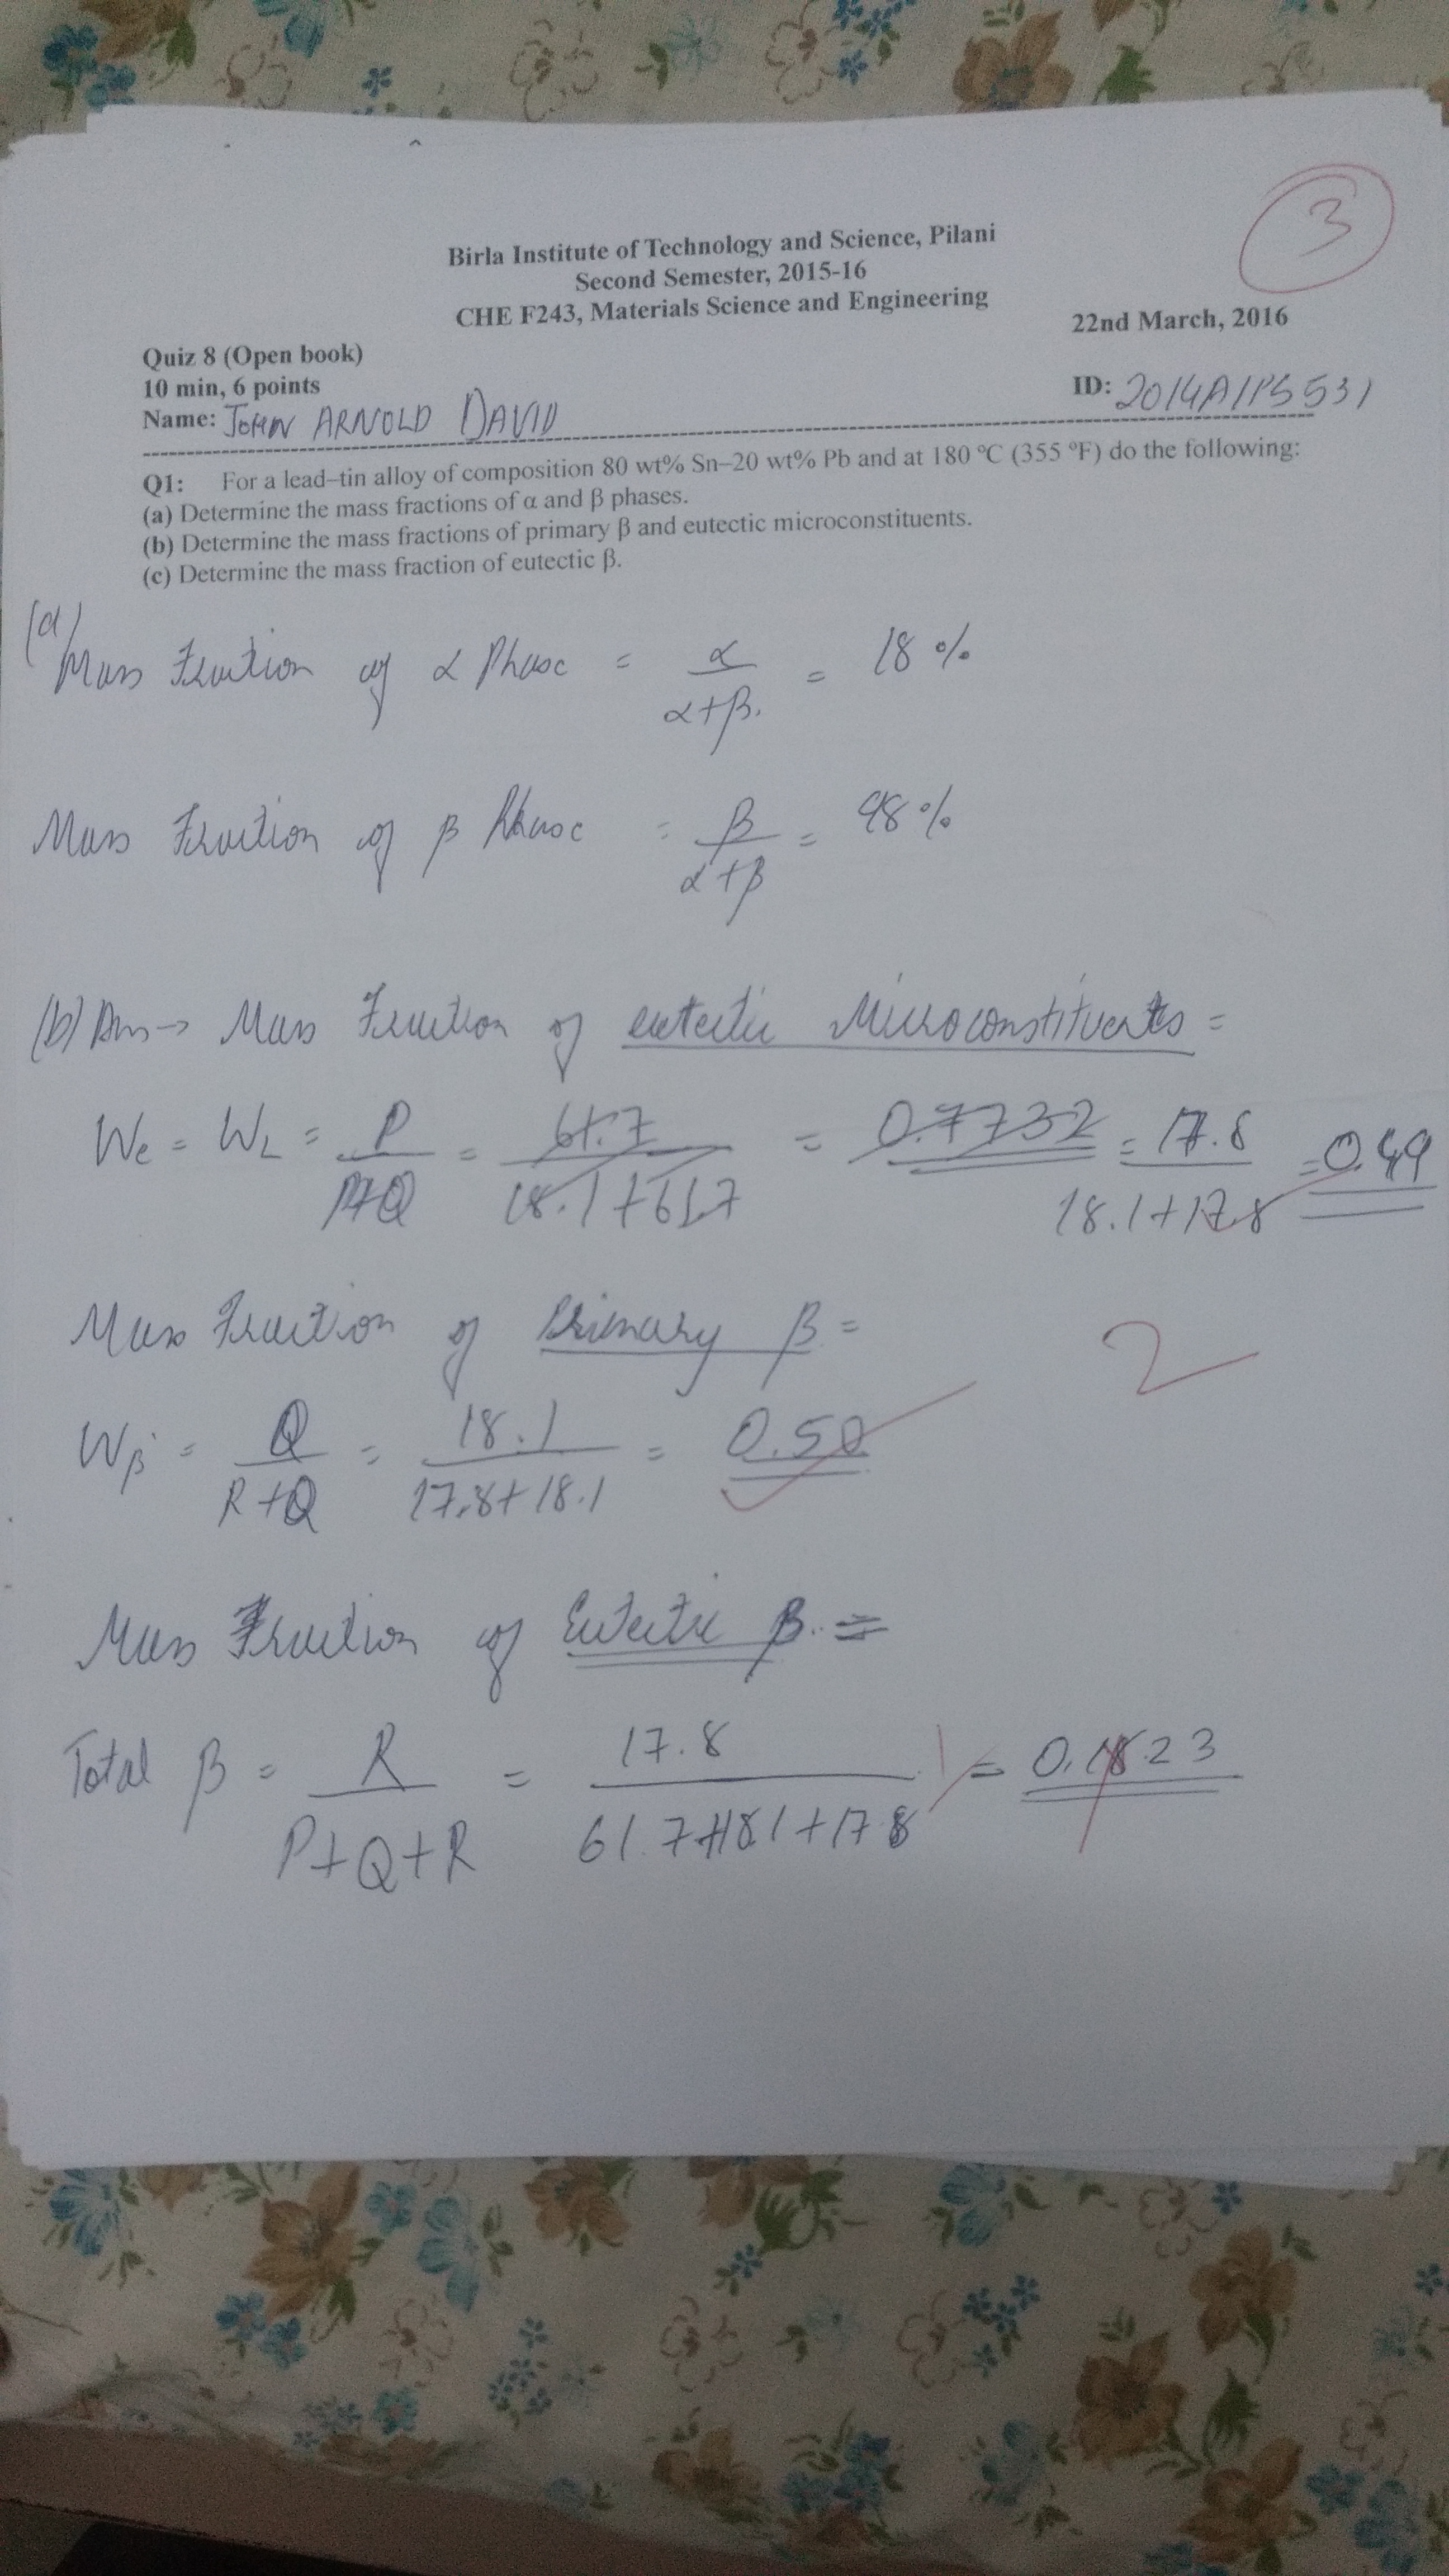 3
Birla Institute of Technology and Science, Pilani
Second Semester, 2015-16
CHE F243, Materials Science and Engineering
22nd March, 2016
Quiz 8 (Open book)
10 min, 6 points
ID: 2014A1PS531
Name: JOHN ARNOLD DAVID
Q1: For a lead–tin alloy of composition 80 wt% Sn–20 wt% Pb and at 180 °C (355 °F) do the following:
(a) Determine the mass fractions of α and β phases.
(b) Determine the mass fractions of primary β and eutectic microconstituents.
(c) Determine the mass fraction of eutectic β.
(a)
Mass Fraction of α Phase = α / α+β. = 18 %
Mass Fraction of β Phase = β / α+β = 98 %
(b) Ans → Mass Fraction of eutectic Microconstituents =
We = WL = P / P+Q = 61.7 / 18.1+61.7 = 0.7732 = 17.8 / 18.1+17.8 = 0.49
Mass Fraction of Primary β =
2
Wβ' = Q / R+Q = 18.1 / 17.8+18.1 = 0.50
Mass Fraction of Eutectic β =
Total β = R / P+Q+R = 17.8 / 61.7+18.1+17.8 = 0.1823
1